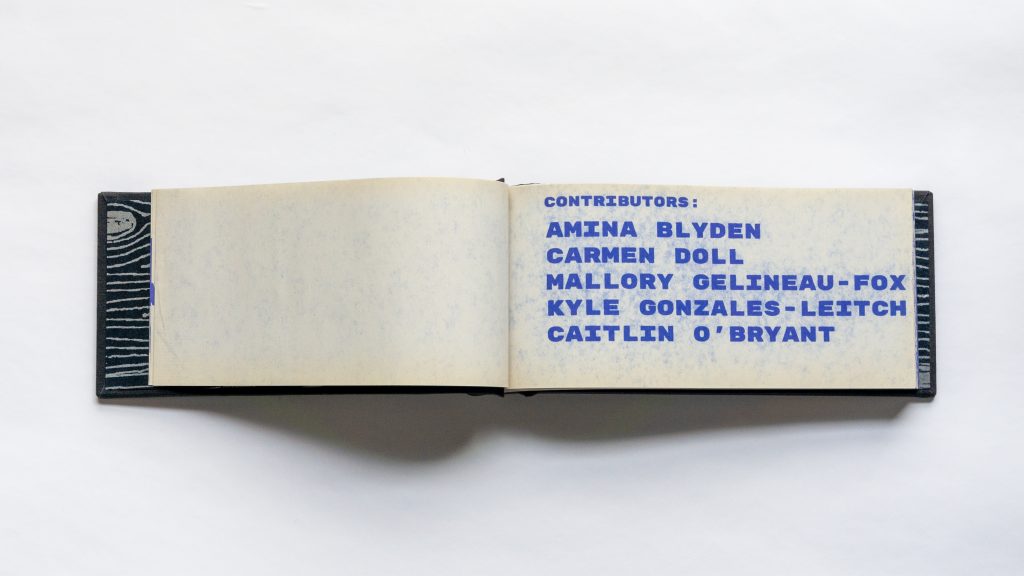 CONTRIBUTORS:
AMINA BLYDEN
CARMEN DOLL
MALLORY GELINEAU-FOX
KYLE GONZALES-LEITCH
CAITLIN O'BRYANT